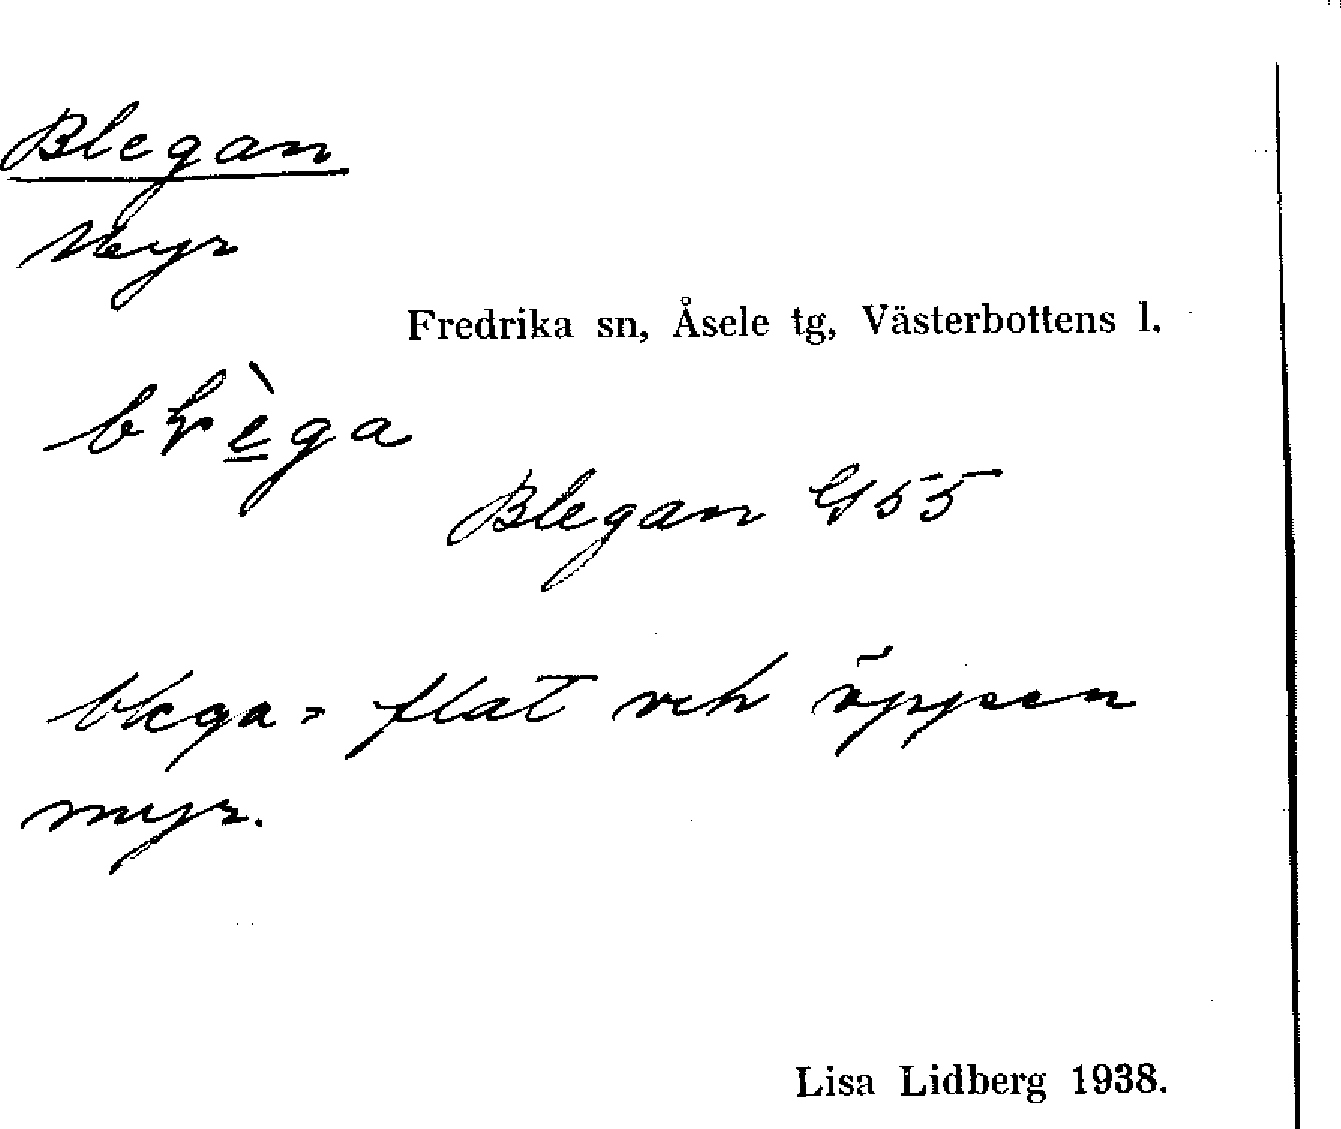 Blegan
Myr
Fredrika sn, Åsele tg, Västerbottens l.
bḷèga
Blegan G55
blega = flat och öppen
myr.
Lisa Lidberg 1938.